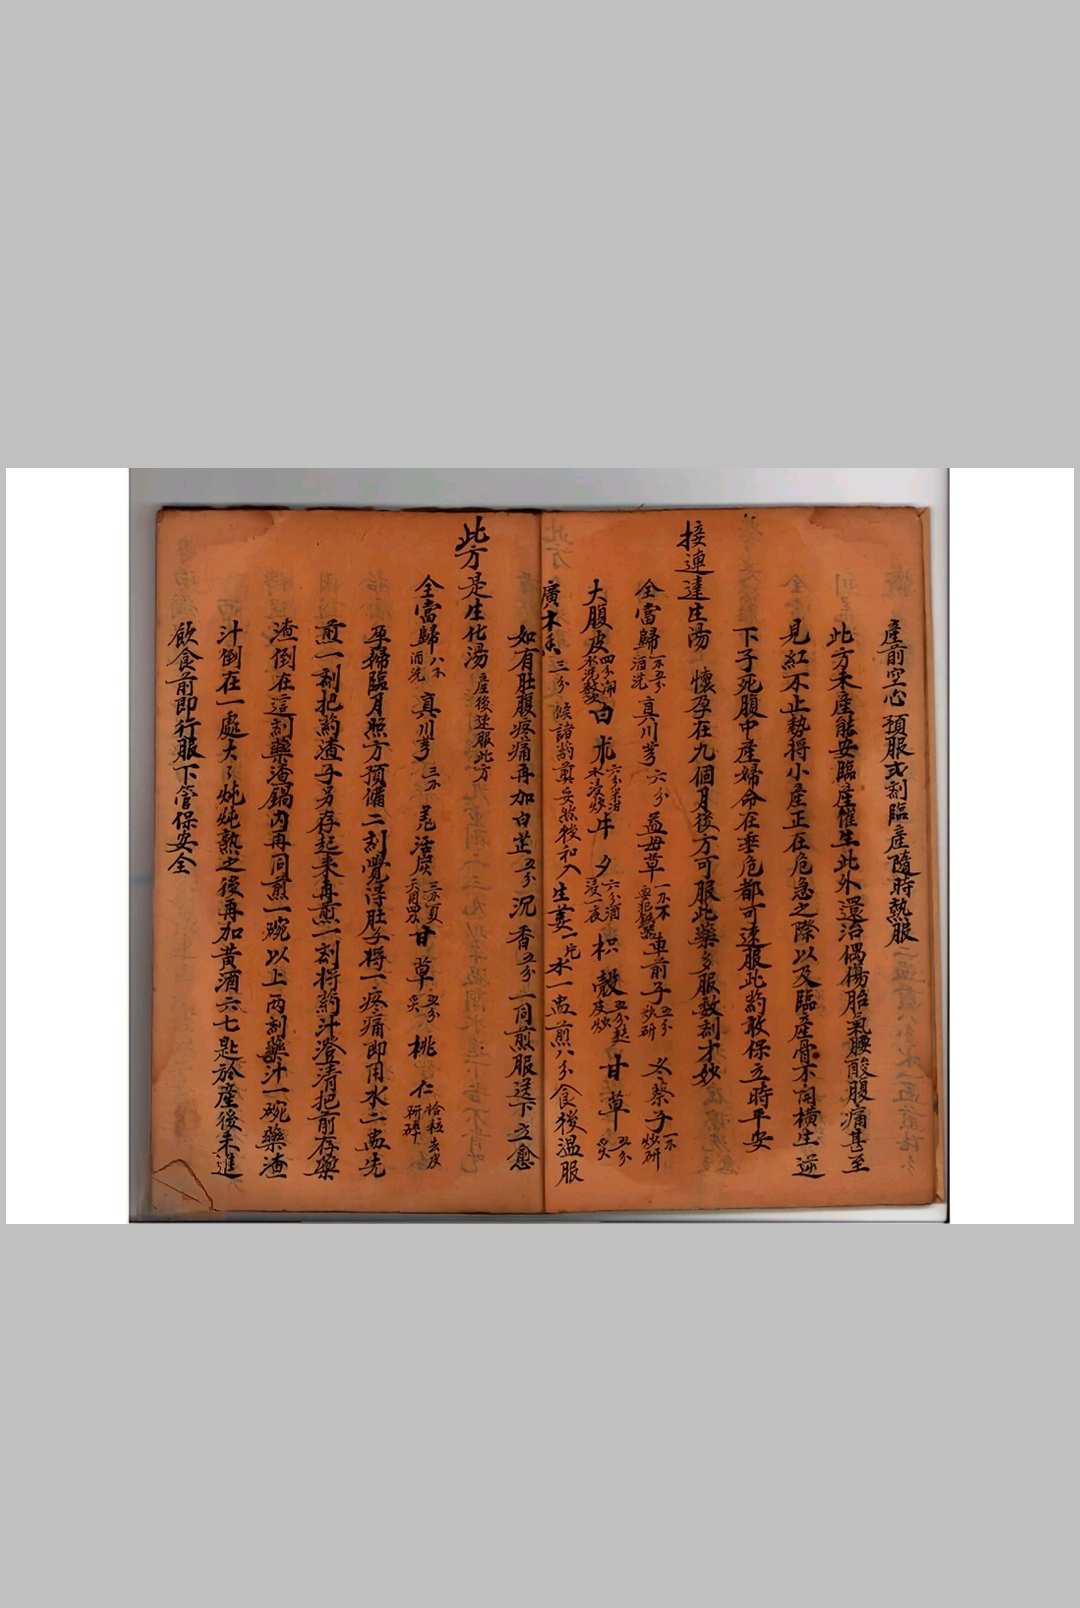 產前空心預服弍剤臨產隨時熱服
此方未產能安臨產催生此外還治偶傷胎氣腰酸腹痛甚至
見紅不止勢将小產正在危急之際以及臨產骨不開橫生逆
下子死腹中產婦命在垂危都可速服此药敢保立時平安
接連達生湯 懷孕在九個月後方可服此藥多服数剤才妙
全當歸 酒洗 真川芎 六分 益母草 車前子 五分 炒研 冬葵子 炒研
大腹皮 四分 白朮 六分 水浸炒 牛夕 六分酒浸一夜 枳殼 五分 甘草 五分 炙
廣木香 三分 候諸药煎妥然後和入 生姜一片 水一盅煎八分食後温服
如有肚腹疼痛再加白芷五分沉香五分一同煎服送下立愈
此方是生化湯 產後速服此方
全當歸 酒洗 真川芎 甘草 五分 炙 桃仁 拾粒去皮研碎
孕婦臨月照方預備二剤覺得肚子将一疼痛即用水二盅先
煎一剤把药渣子另存起来再煎一剤将药汁澄清把前存藥
渣倒在這剤藥渣鍋内再同煎一碗以上两剤藥汁一碗藥渣
汁倒在一處大大炖炖熟之後再加黄酒六七匙於産後未進
飲食前即行服下管保安全